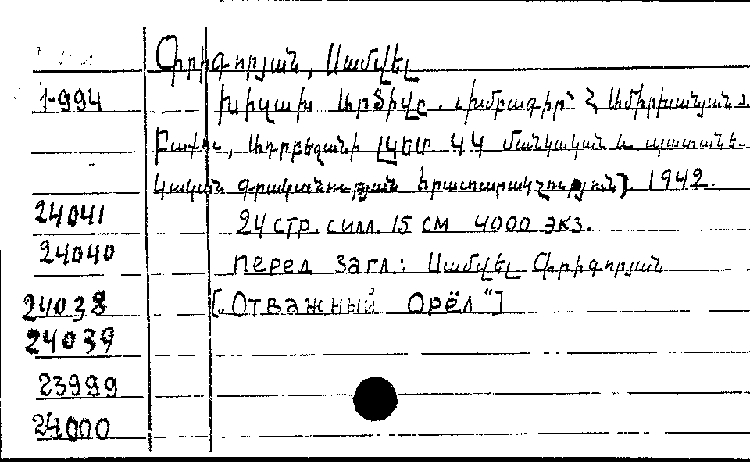 Գրիգորյան, Սամվել
1-994
Խիզախ Արծիվը. խմբագիր՝ Հ Ամիրխանյան
Բաքու, Ադրբեջանի ԼԿԵՄ ԿԿ մանկական և պատանե-
կական գրականության հրատարակչություն]. 1942.
24041 24 стр. илл. 15 см 4000 экз.
24040 перед загл.: Սամվել Գրիգորյան
24038 [„Отважный Орёл“]
24039
23999
24000